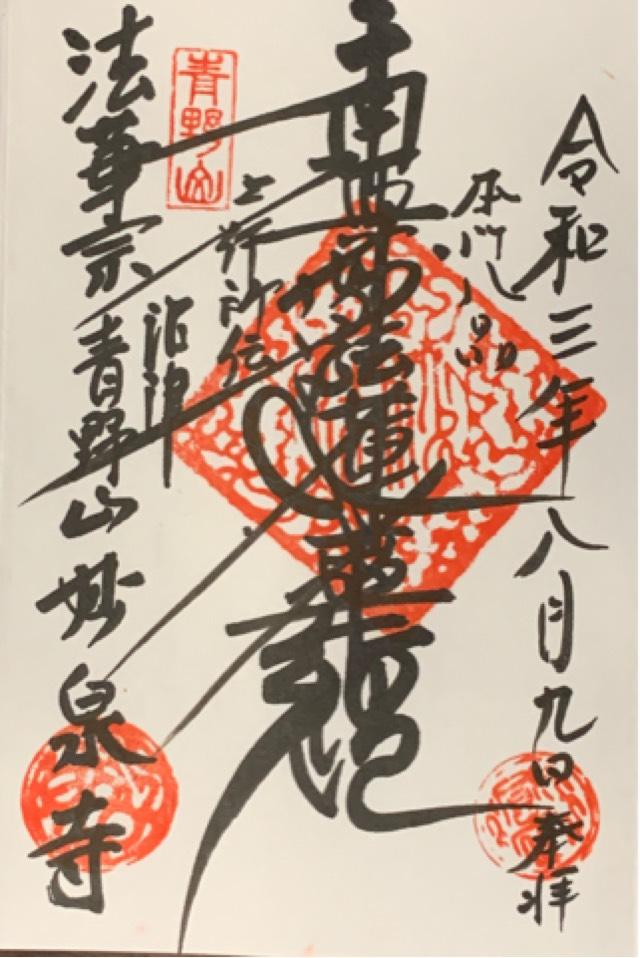 令和三年八月九日奉拝
本門八品
南無妙法蓮華経
上行所伝
青野山
沼津
法華宗青野山妙泉寺